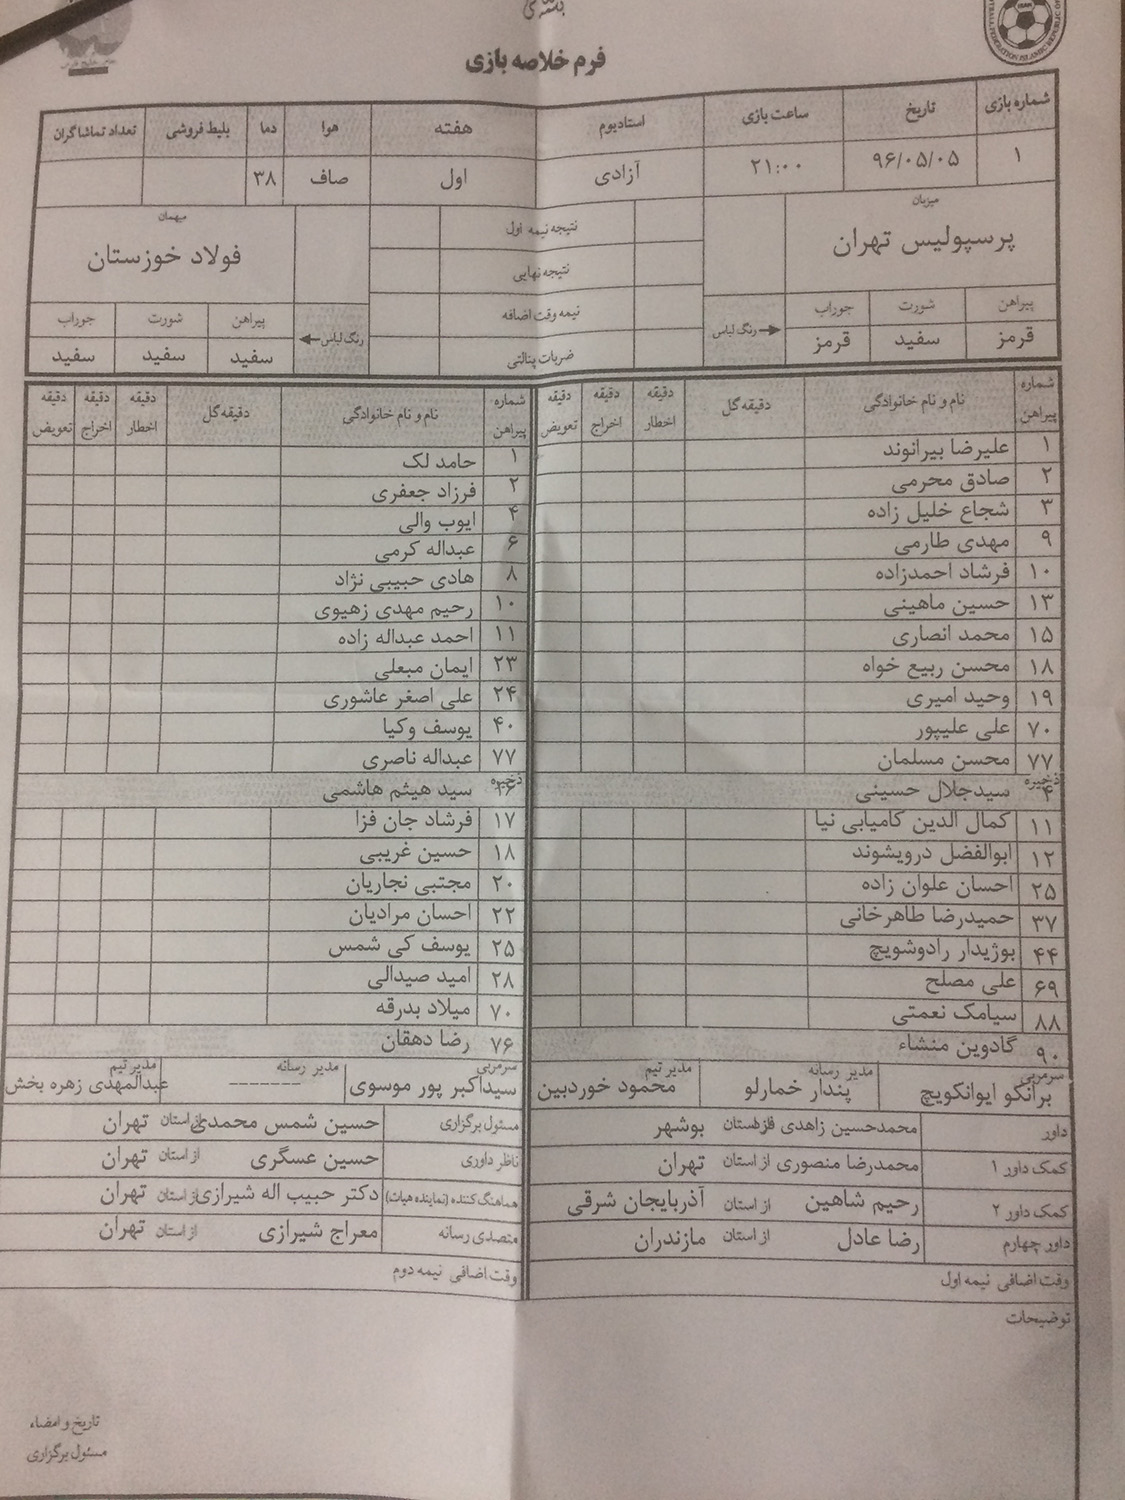 فرم خلاصه بازی
شماره بازی تاریخ ساعت بازی استادیوم هفته هوا دما بلیط فروشی تعداد تماشاگران
۱ ۹۶/۰۵/۰۵ ۲۱:۰۰ آزادی اول صاف ۳۸
میزبان نتیجه نیمه اول میهمان
پرسپولیس تهران نتیجه نهایی فولاد خوزستان
پیراهن شورت جوراب رنگ لباس نیمه وقت اضافه رنگ لباس پیراهن شورت جوراب
قرمز سفید قرمز ضربات پنالتی سفید سفید سفید
شماره پیراهن نام و نام خانوادگی دقیقه گل دقیقه اخطار دقیقه اخراج دقیقه تعویض شماره پیراهن نام و نام خانوادگی دقیقه گل دقیقه اخطار دقیقه اخراج دقیقه تعویض
۱ علیرضا بیرانوند ۱ حامد لک
۲ صادق محرمی ۲ فرزاد جعفری
۳ شجاع خلیل زاده ۴ ایوب والی
۹ مهدی طارمی ۶ عبداله کرمی
۱۰ فرشاد احمدزاده ۸ هادی حبیبی نژاد
۱۳ حسین ماهینی ۱۰ رحیم مهدی زهیوی
۱۵ محمد انصاری ۱۱ احمد عبداله زاده
۱۸ محسن ربیع خواه ۲۳ ایمان مبعلی
۱۹ وحید امیری ۲۴ علی اصغر عاشوری
۷۰ علی علیپور ۴۰ یوسف وکیا
۷۷ محسن مسلمان ۷۷ عبداله ناصری
ذخیره ۴ سیدجلال حسینی ذخیره سید هیثم هاشمی
۱۱ کمال الدین کامیابی نیا ۱۷ فرشاد جان فزا
۱۲ ابوالفضل درویشوند ۱۸ حسین غریبی
۲۵ احسان علوان زاده ۲۰ مجتبی نجاریان
۳۷ حمیدرضا طاهرخانی ۲۲ احسان مرادیان
۴۴ بوژیدار رادوشویچ ۲۵ یوسف کی شمس
۶۹ علی مصلح ۲۸ امید صیدالی
۸۸ سیامک نعمتی ۷۰ میلاد بدرقه
۹۰ گادوین منشاء ۷۶ رضا دهقان
سرمربی مدیر رسانه مدیر تیم سرمربی مدیر رسانه مدیر تیم
برانکو ایوانکویچ پندار خمارلو محمود خوردبین سیداکبر پور موسوی -------- عبدالمهدی زهره بخش
داور محمدحسین زاهدی فر از استان بوشهر مسئول برگزاری حسین شمس محمدی از استان تهران
کمک داور ۱ محمدرضا منصوری از استان تهران ناظر داوری حسین عسگری از استان تهران
کمک داور ۲ رحیم شاهین از استان آذربایجان شرقی هماهنگ کننده (نماینده هیات) دکتر حبیب اله شیرازی از استان تهران
داور چهارم رضا عادل از استان مازندران متصدی رسانه معراج شیرازی از استان تهران
وقت اضافی نیمه اول وقت اضافی نیمه دوم
توضیحات
تاریخ و امضاء
مسئول برگزاری